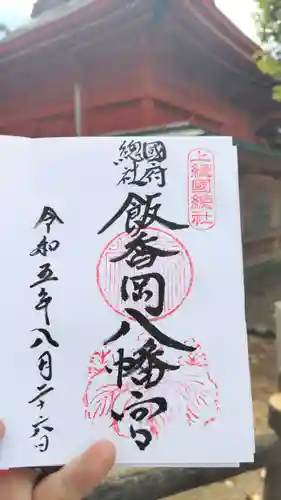 上総国総社
國府
總社
飯香岡八幡宮
令和五年八月二十六日